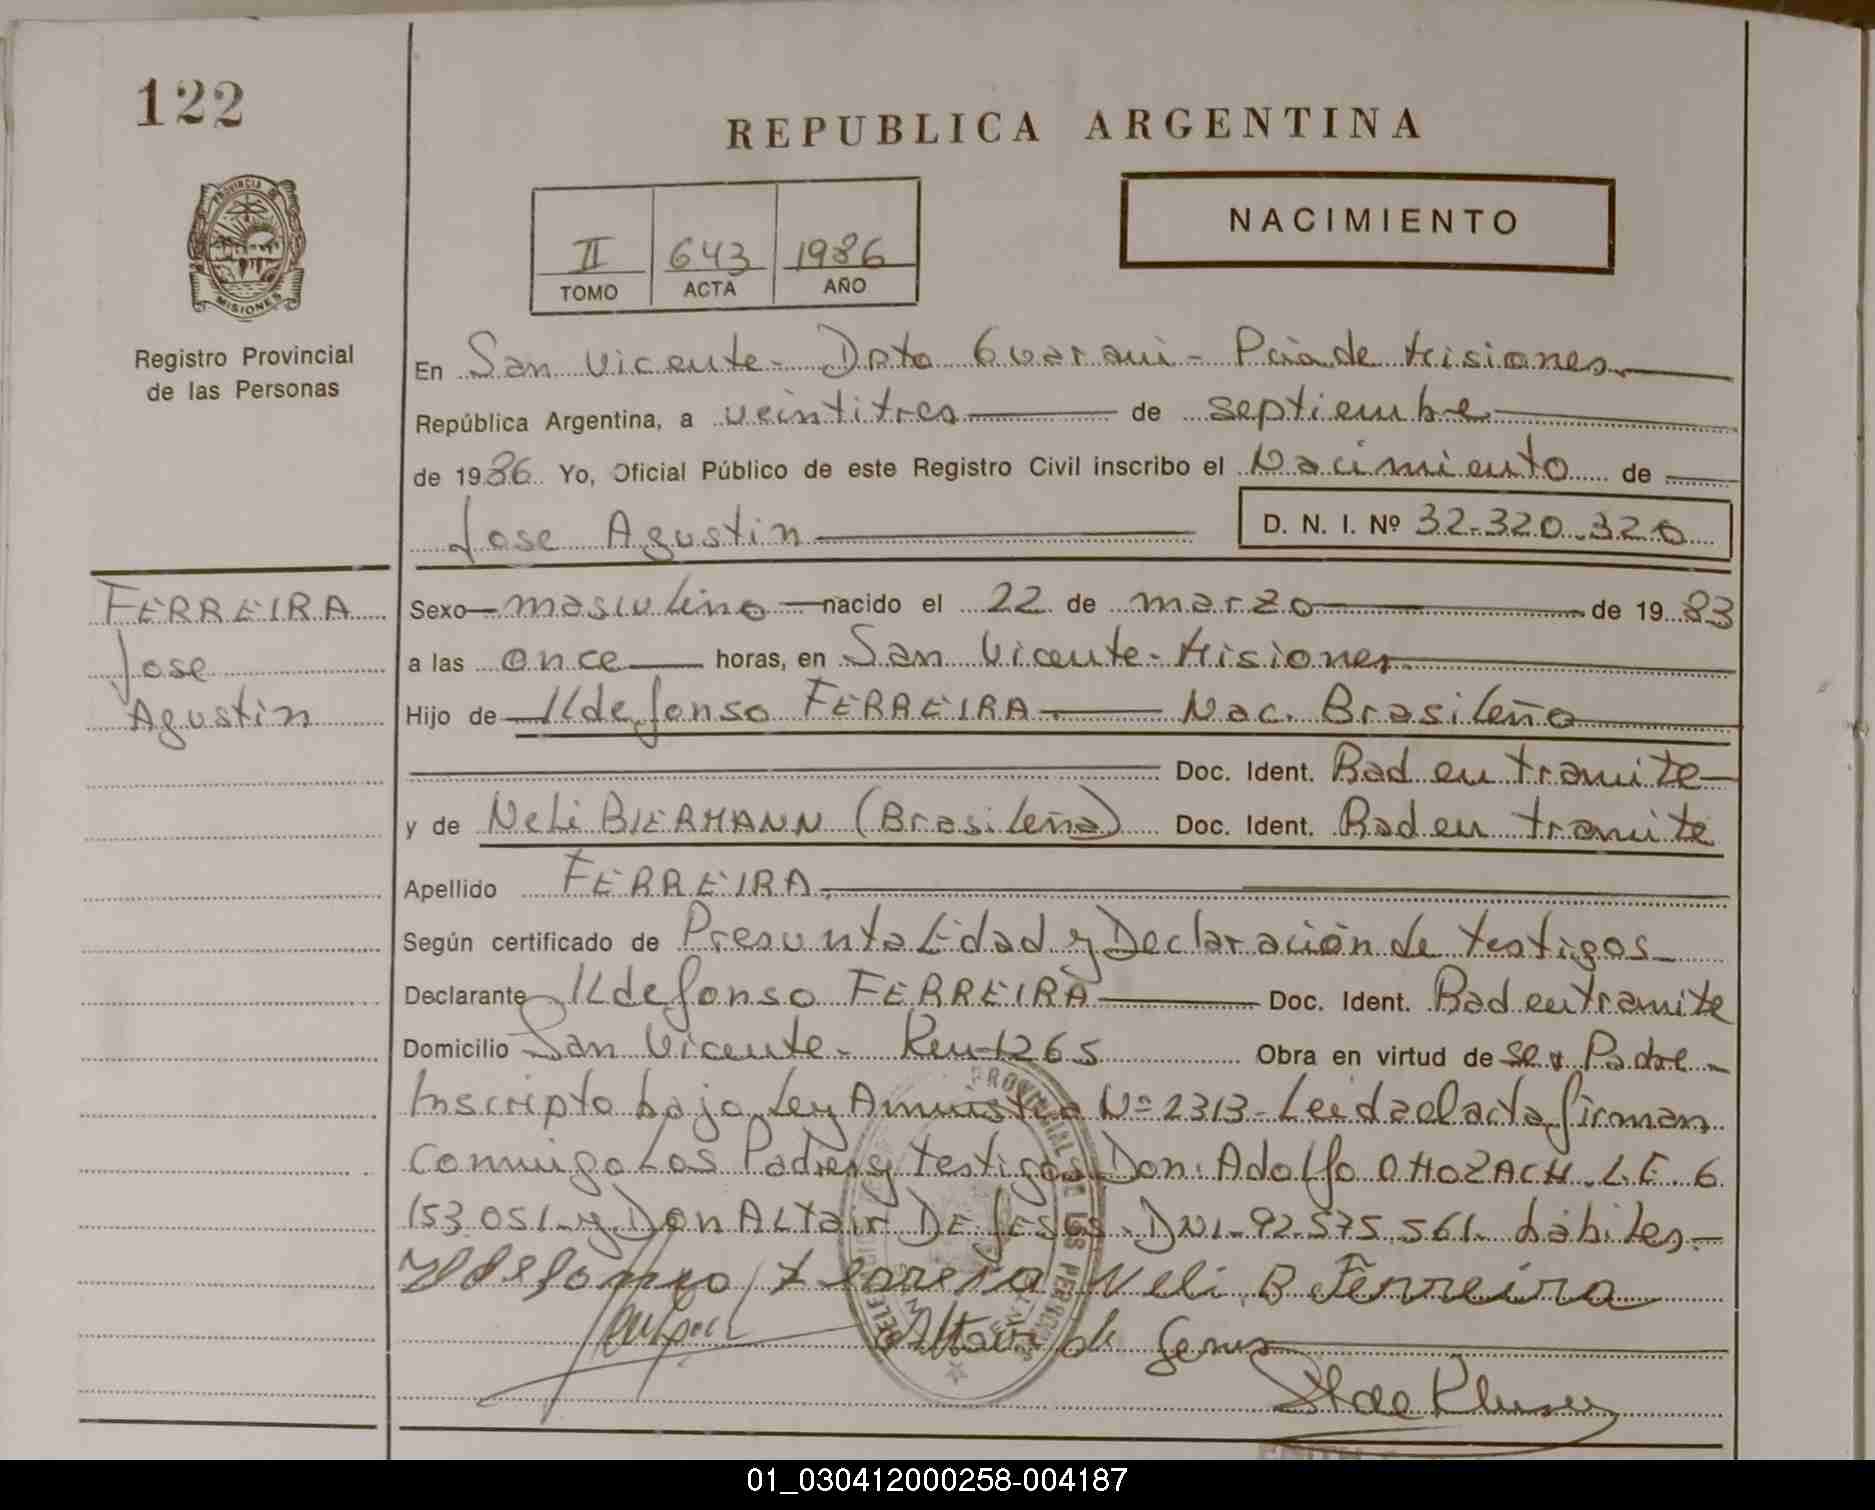 122
REPUBLICA ARGENTINA
PROVINCIA DE
MISIONES
Registro Provincial
de las Personas
II 643 1986
TOMO ACTA AÑO
NACIMIENTO
En San Vicente - Dpto Guarani - Pcia de Misiones
República Argentina, a veintitres de septiembre
de 1986 Yo, Oficial Público de este Registro Civil inscribo el Nacimiento de
Jose Agustin D. N. I. Nº 32.320.320
FERREIRA
Jose
Agustin
Sexo masculino nacido el 22 de marzo de 1983
a las once horas, en San Vicente - Misiones
Hijo de Ildefonso FERREIRA Nac. Brasileño
Doc. Ident. Rad en tramite
y de Neli BIERMANN (Brasileña) Doc. Ident. Rad en tramite
Apellido FERREIRA
Según certificado de Presunta Edad y Declaración de testigos
Declarante Ildefonso FERREIRA Doc. Ident. Rad en tramite
Domicilio San Vicente - Km 1265 Obra en virtud de ser Padre
Inscripto bajo Ley Amnistia Nº 2313 - Leida el acta firman
conmigo Los Padres y testigos Don: Adolfo L.E. 6
153.051 - y Don Altair DE JESUS - DNI - 92.575.561 habiles.-
Ildefonso Ferreira Neli B Ferreira
Altair de Jesus
PROVINCIAL DE LAS PERSONAS
01_030412000258-004187